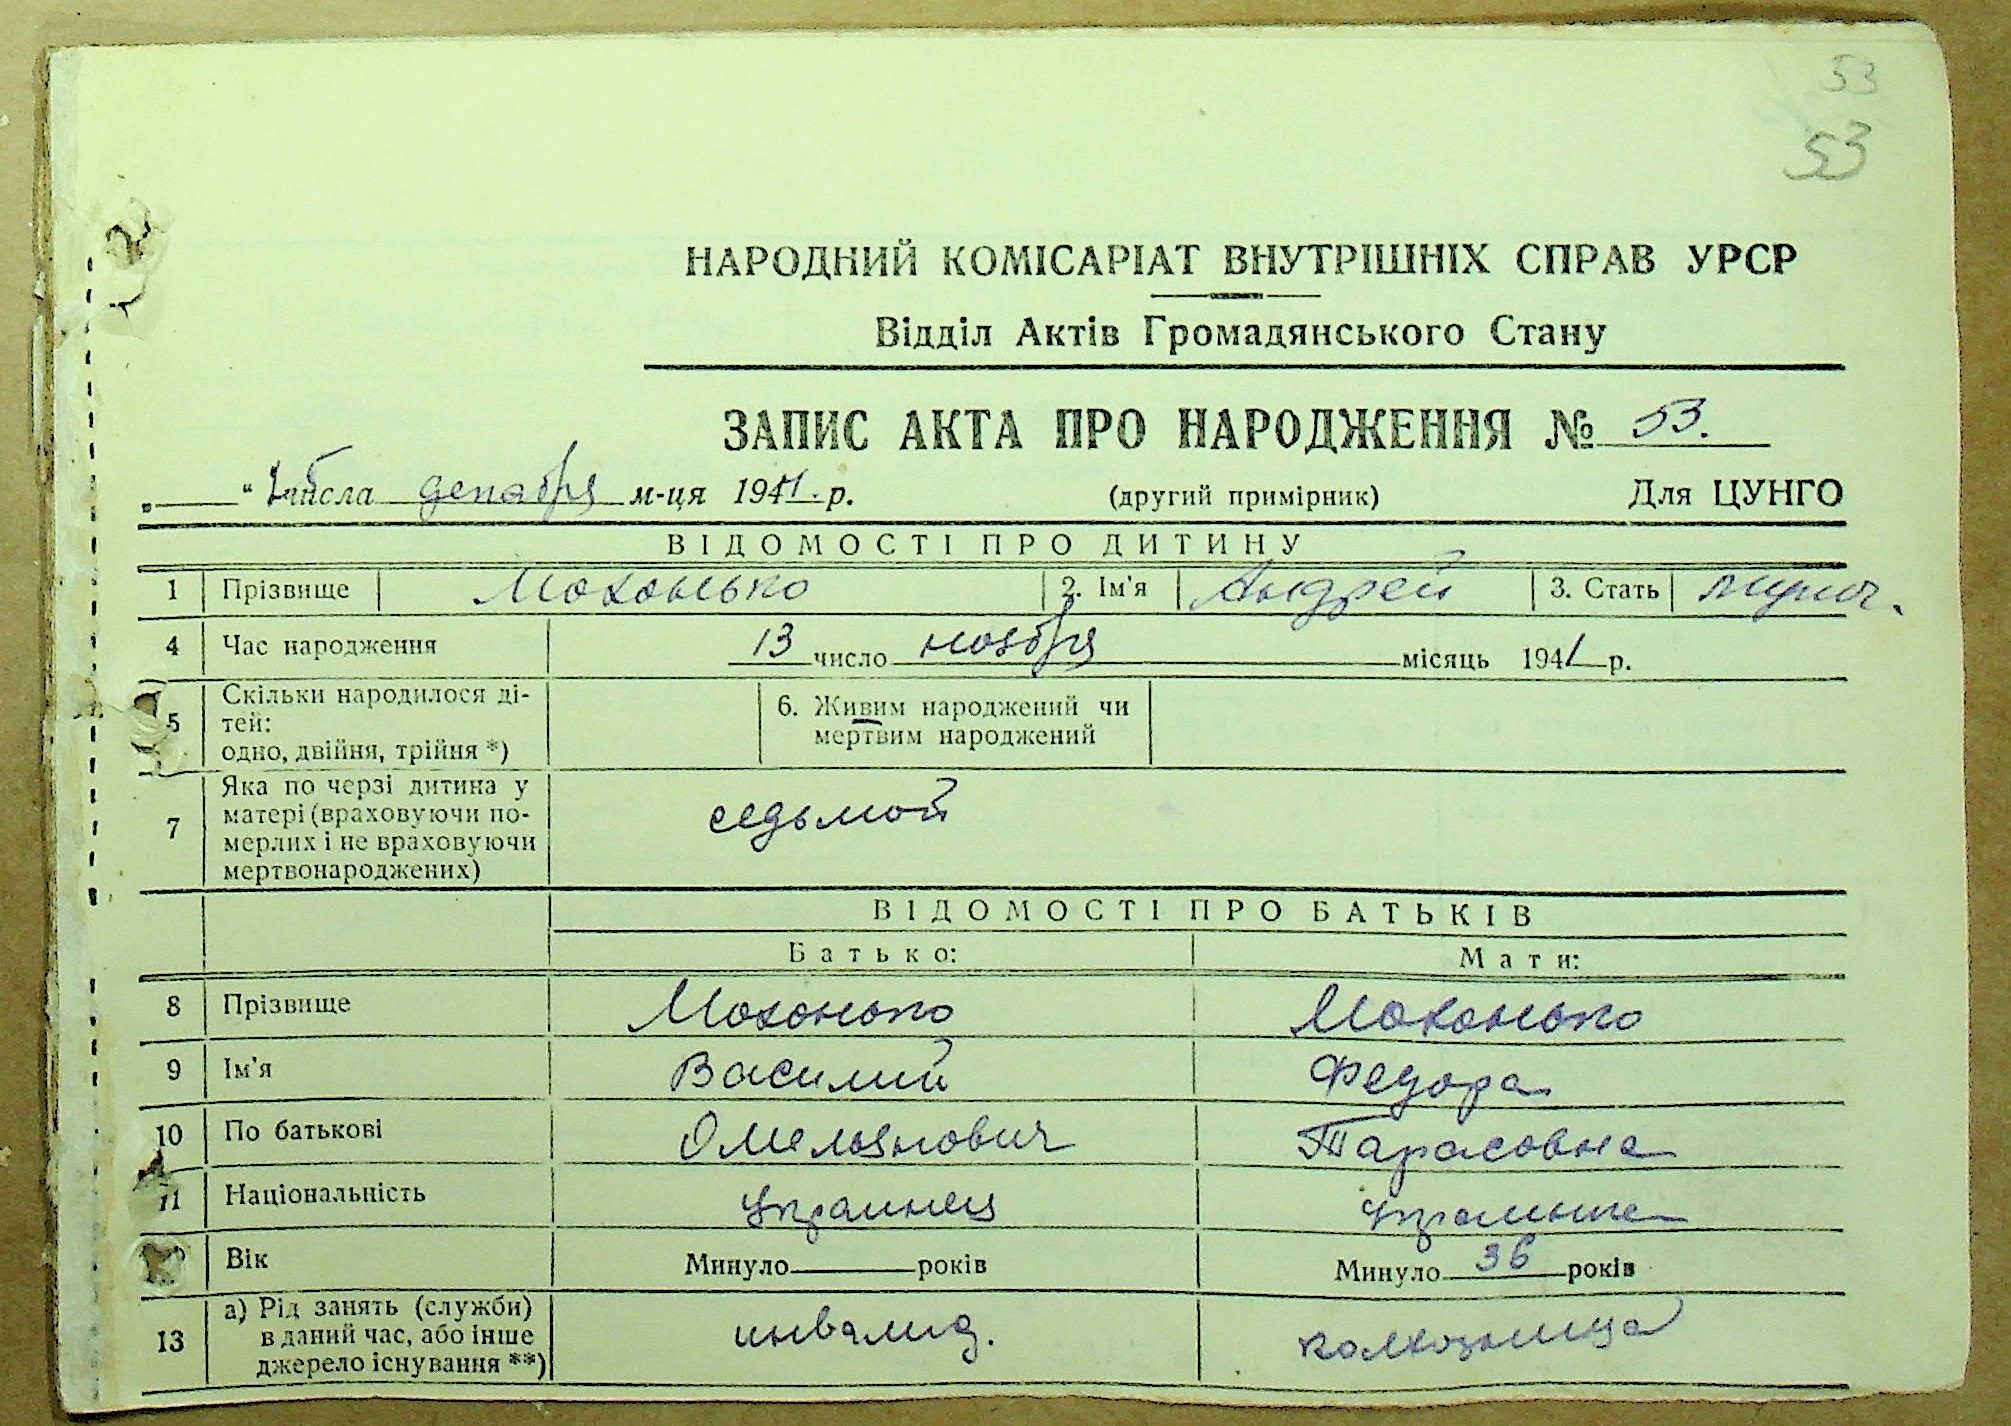 53
53
НАРОДНИЙ КОМІСАРІАТ ВНУТРІШНІХ СПРАВ УРСР
Відділ Актів Громадянського Стану
ЗАПИС АКТА ПРО НАРОДЖЕННЯ № 53.
„ “ числа декабря м-ця 1941. р. (другий примірник) Для ЦУНГО
ВІДОМОСТІ ПРО ДИТИНУ
1 Прізвище Мохонько 2. Ім'я Андрей 3. Стать мужч.
4 Час народження 13 число ноября місяць 1941 р.
5 Скільки народилося ді-
тей:
одно, двійня, трійня *)
6. Живим народжений чи
мертвим народжений
7 Яка по черзі дитина у
матері (враховуючи по-
мерлих і не враховуючи
мертвонароджених)
седьмой
ВІДОМОСТІ ПРО БАТЬКІВ
Батько: Мати:
8 Прізвище Мохонько Мохонько
9 Ім'я Василий Федора
10 По батькові Омельянович Тарасовна
11 Національність украинец украинка
Вік Минуло років Минуло 36 років
13 а) Рід занять (служби)
в даний час, або інше
джерело існування **)
инвалид. колхозница